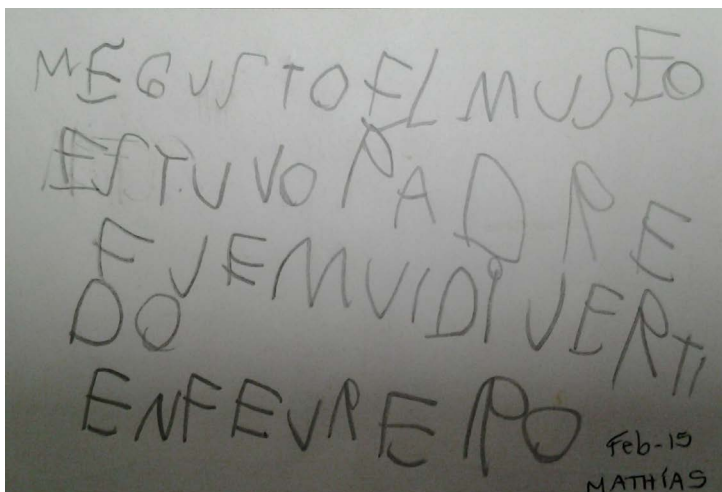 ME GUSTO EL MUSEO
ESTUVO PADRE
FUE MUI DIVERTI
DO
EN FEVRERO
Feb-15
MATHÍAS